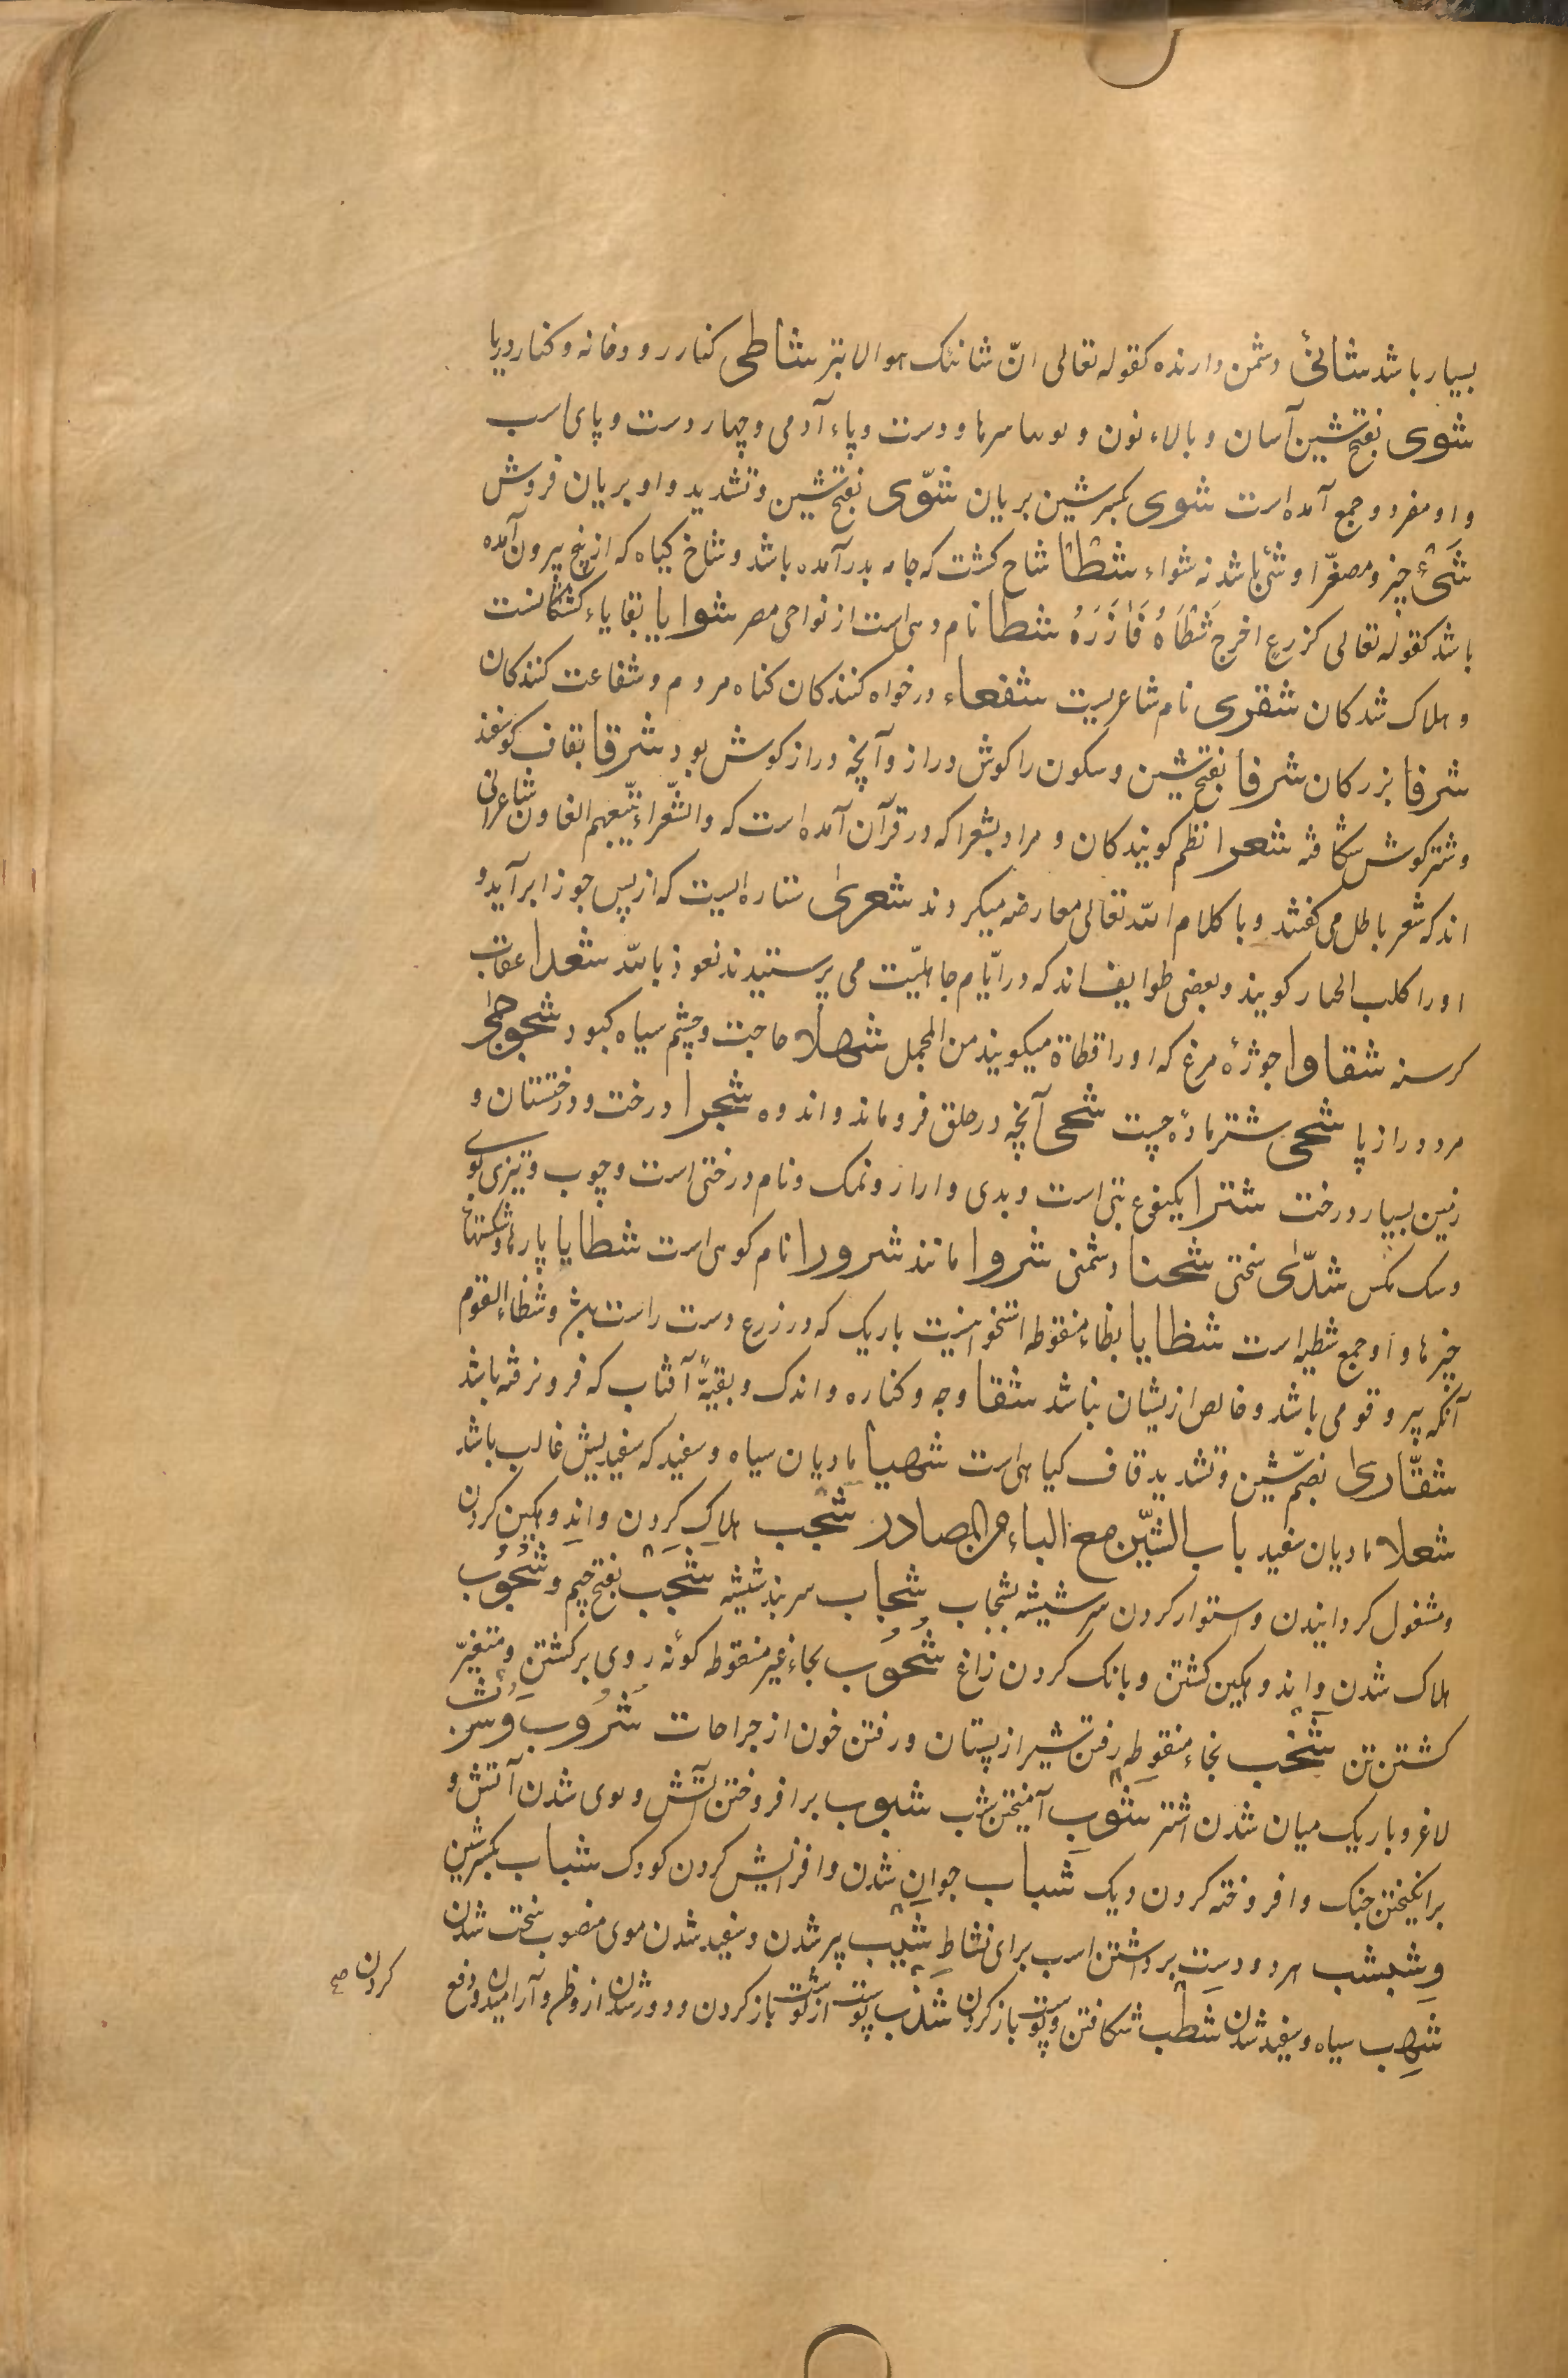 بسیار باشد شانئ دشمن دارنده کقوله تعالی انّ شانئک هوالابتر شاطی کنار رودخانه و کنار دریا
شوی بفتح شین آسان و بالاء نون و سرها و دست و پاء آدمی و چهار دست و پای اسب
و او مفرد و جمع آمده است شوی بکسر شین بریان شوّی بفتح شین و تشدید واو بریان فروش
شَیْءٌ چیز و مصغّر او شئی باشد نه شواء شطأ شاخ کشت که جامه بدر آمده باشد و شاخ کیاه که از بیخ بیرون آمده
باشد کقوله تعالی کزرعٍ اخرج شَطْأَهُ فَآزَرَهُ شطا نام دهی است از نواحی مصر شوایا بقایاء
و هلاک شدکان شقری نام شاعریست شفعاء درخواه کنندکان کناه مردم و شفاعت کنندکان
شرفا بزرکان شرفا بفتح شین و سکون را کوش دراز و آنچه دراز کوش بود شرقا بقاف کوسفند
و شتر کوش شکافته شعرا نظم کویندکان و مراد بشعرا که در قرآن آمده است که والشّعراء یتّبعهم الغاون شاعرانی
اند که شعر باطل می کفتند و با کلام الله تعالی معارضه میکردند شعریٰ ستاره ایست که از پس جوزا برآید و
او را کلب الجبار کویند و بعضی طوایف اند که در ایّام جاهلیّت می پرستیدند نعوذ بالله شغدا عقاب
کرسنه شقاوا جوژهٔ مرغ که او را قطاة میکویند من المجمل شهلا حاجت و چشم سیاه کبود شجوجیٰ
مرد دراز پا شحی شتر مادهٔ چپت شجی آنچه در حلق فروماند و اندوه شجرا درخت و درختستان و
زمین بسیار درخت شترا یکنوع بتی است و بدی و ارار و نمک و نام درختی است و چوب و تیزی بوی
و سک مکس شدّیٰ سختی شحنا دشمنی شروا مانند شرورا نام کوهی است شطایا پارها و شکستهاء
چیزها و او جمع شطیه است شظایا بظاء منقوطه استخوانیست باریک که در زرع دست راست و شظاء القوم
آنکه پیرو قومی باشد و خالص ازیشان نباشد شقا وجه و کناره و اندک و بقیّهٔ آفتاب که فرو نرفته باشد
شقّاریٰ بضمّ شین و تشدید قاف کیاهی است شهبا مادیان سیاه و سفید که سفیدیش غالب باشد
شعلا مادیان سفید باب الشّین مع الباء من المصادر شَجْب هلاک کردن و اندوهکین کردن
و مشغول کردانیدن و استوار کردن سر شیشه بشجاب شجاب سر بند شیشه شَجَب بفتح جیم و شُجُوب
هلاک شدن و اندوهکین کشتن و بانک کردن زاغ شُحُوب بحاء غیر منقوطه کونهٔ روی برکشتن و متغیّر
کشتن تن شَخْب بخاء منقوطه رفتن شیر از پستان و رفتن خون از جراحات شزوب و
لاغر و باریک میان شدن اشتر شَوْب آمیختن شَبّ شبوب برافروختن آتش و قوی شدن آتش و
برانکیختن جنک و افروخته کردن دیک شَباب جوان شدن و افزایش کردن کودک شباب بکسر شین
و شبشب هر دو دست برداشتن اسب برای نشاط شَیْب پیر شدن و سفید شدن موی منصوب سخت شدن
شَهَب سیاه و سفید شدن شَطْب شکافتن و پوست باز کردن شذب پوست از باز کردن و دور شدن از وطن و آرامیدن و دفع
کردن صح